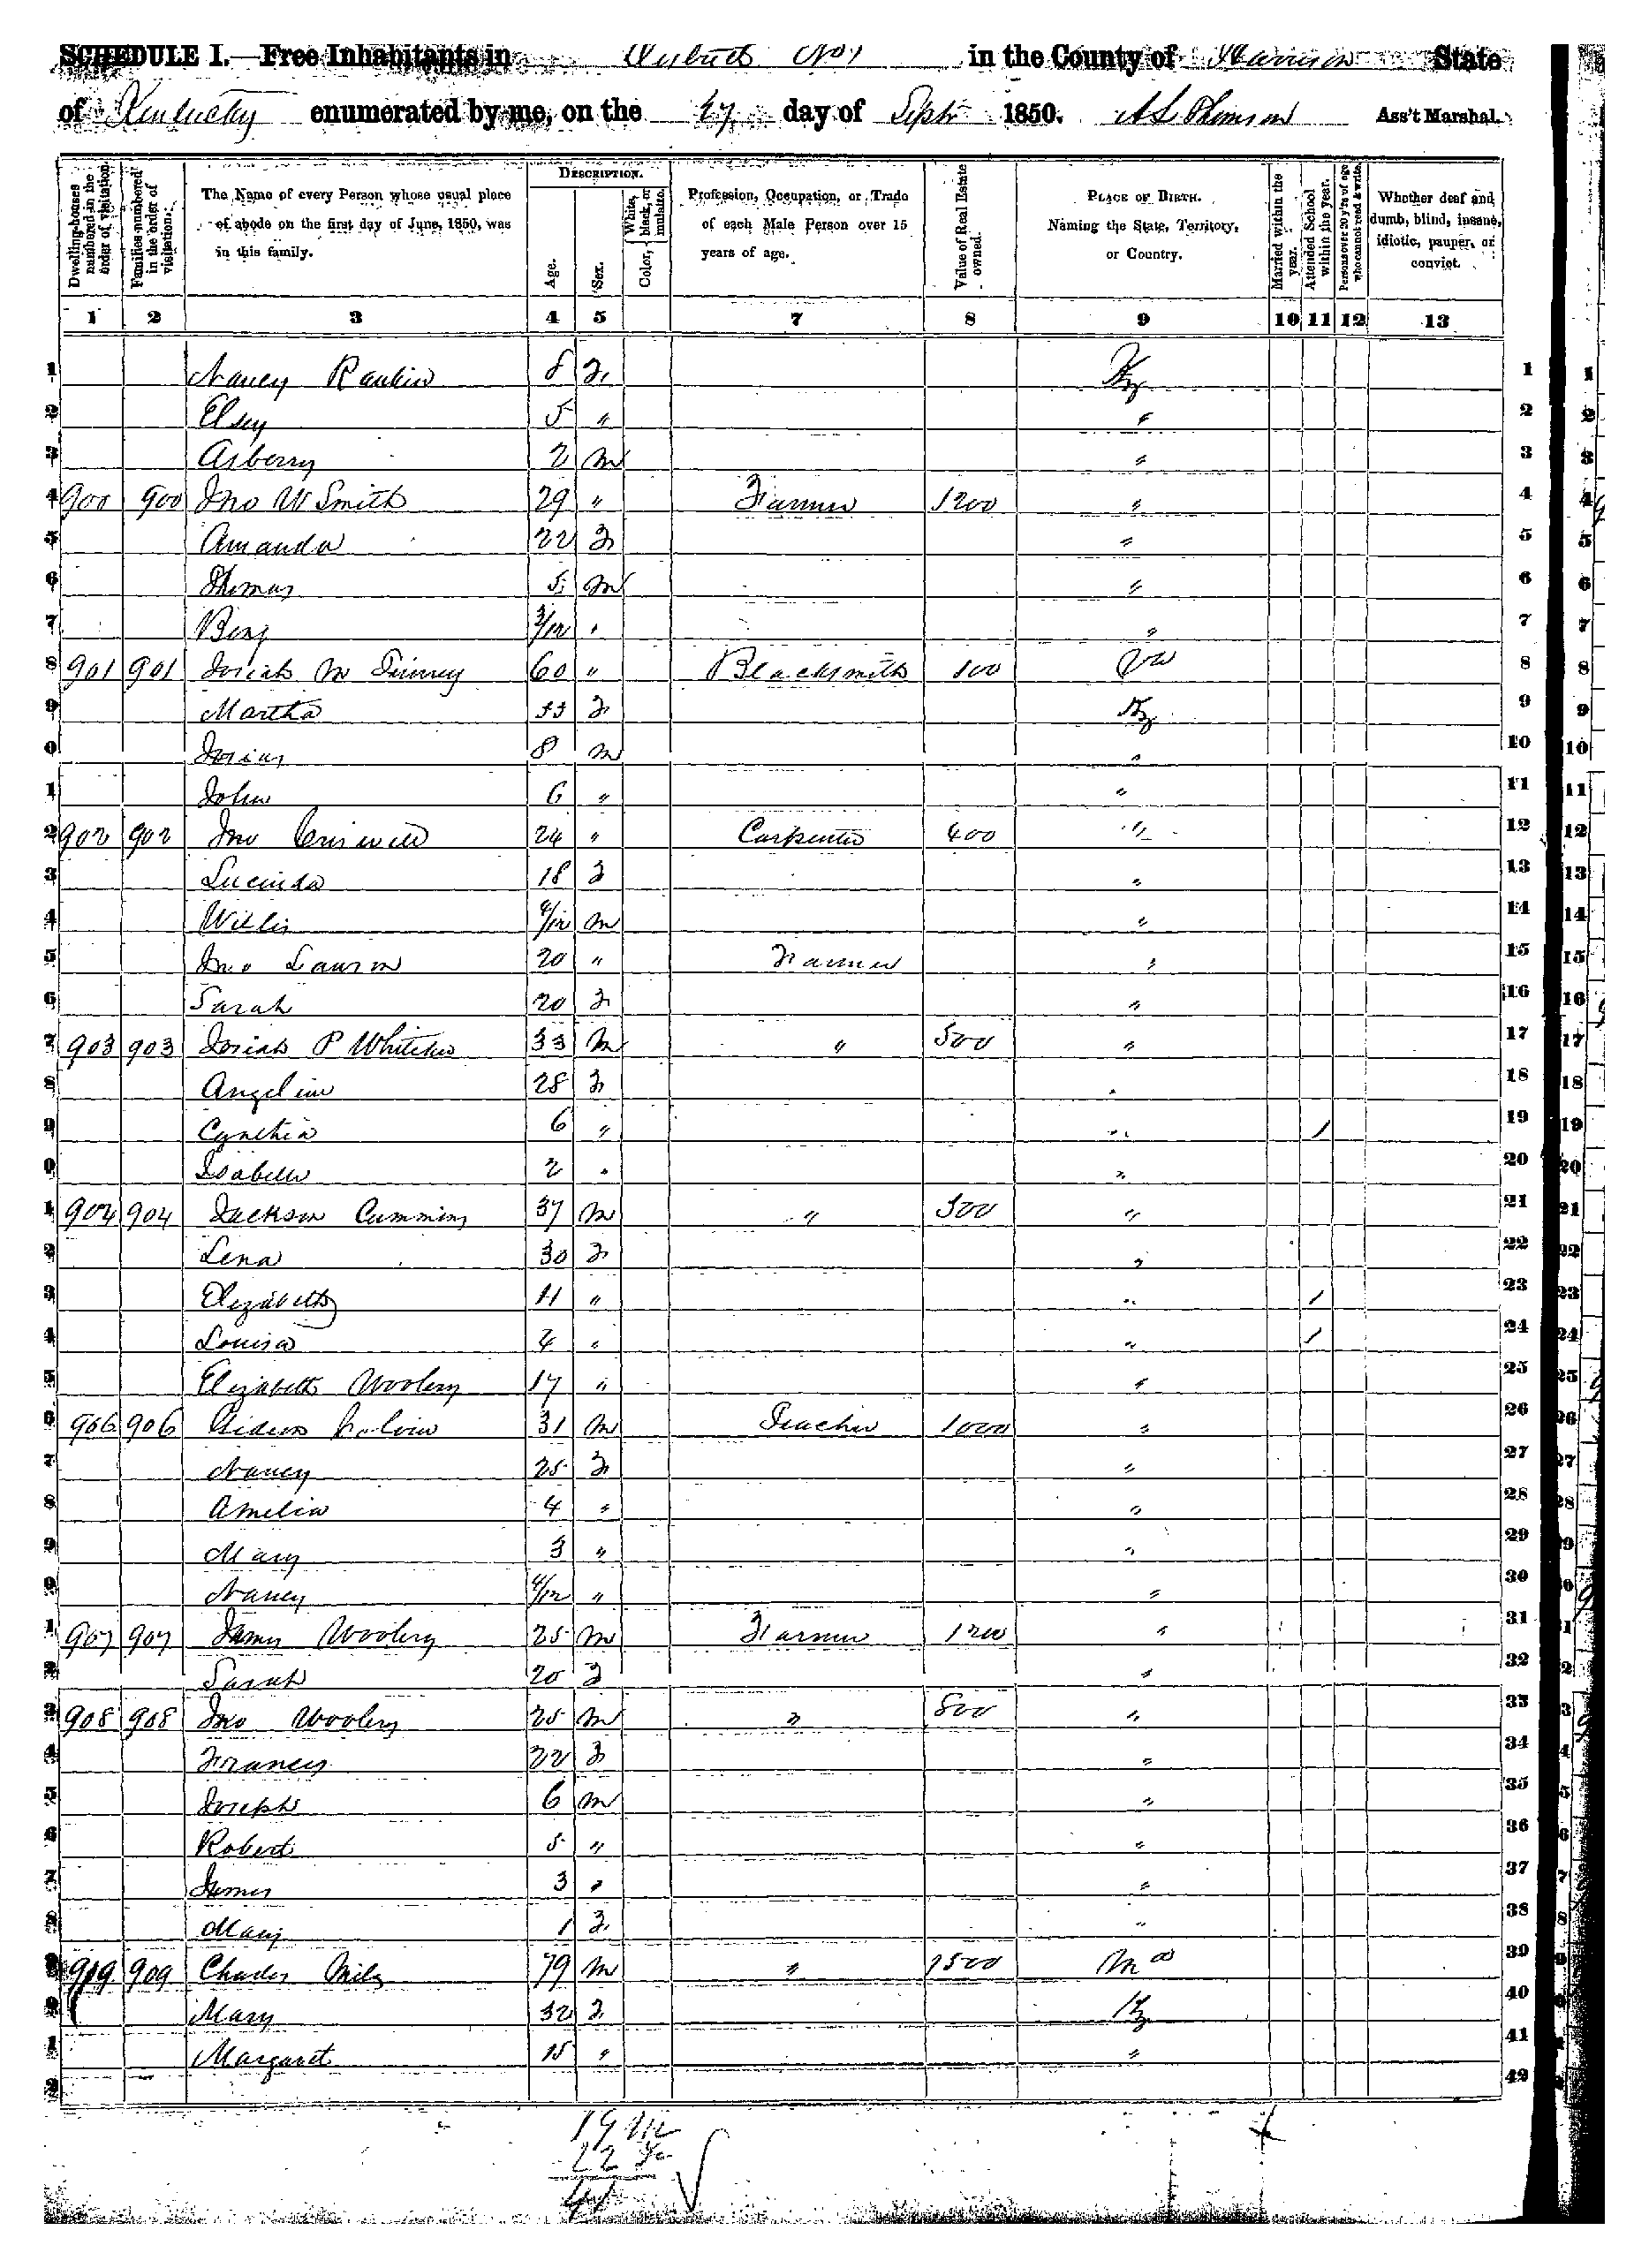 SCHEDULE I.—Free Inhabitants in District No 1 in the County of Harrison State
of Kentucky enumerated by me, on the 27 day of Sept 1850. Ass't Marshal.
Dwelling-houses numbered in the order of visitation.
Families numbered in the order of visitation.
The Name of every Person whose usual place of abode on the first day of June, 1850, was in this family.
DESCRIPTION.
Age.
Sex.
Color, White, black, or mulatto.
Profession, Occupation, or Trade of each Male Person over 15 years of age.
Value of Real Estate owned.
PLACE OF BIRTH. Naming the State, Territory, or Country.
Married within the year.
Attended School within the year.
Persons over 20 y'rs of age who cannot read & write.
Whether deaf and dumb, blind, insane, idiotic, pauper, or convict.
1 2 3 4 5 7 8 9 10 11 12 13
1 Nancy Rankin 8 F Ky 1
2 Elsey 5 " " 2
3 Asberry 2 M " 3
4 900 900 Jno W Smith 29 " Farmer 1200 " 4
5 Amanda 22 F " 5
6 Thomas 5 M " 6
7 Benj 3/12 " " 7
8 901 901 Josiah 60 " Blacksmith 100 Va 8
9 Martha 33 F Ky 9
0 Josias 8 M " 10
1 John 6 " " 11
2 902 902 Jno Criswell 24 " Carpenter 400 " 12
3 Lucinda 18 F " 13
4 Willis 4/12 M " 14
5 Jno Lawson 20 " Farmer " 15
6 Sarah 20 F " 16
7 903 903 Josiah P Whitaker 33 M " 500 " 17
8 Angeline 28 F " 18
9 Cynthia 6 " " / 19
0 Isabella 2 " " 20
1 904 904 Jackson Cummins 37 M " 300 " 21
2 Lena 30 F " 22
3 Elizabeth 11 " " / 23
4 Louisa 4 " " / 24
5 Elizabeth Woolery 17 " " 25
6 906 906 Gideon 31 M Teacher 1000 " 26
7 Nancy 25 F " 27
8 Amelia 4 " " 28
9 Mary 3 " " 29
0 Nancy 4/12 " " 30
1 907 907 James Woolery 25 M Farmer 1200 " 31
2 Sarah 20 F " 32
3 908 908 Jno Woolery 25 M " 800 " 33
4 Francis 22 F " 34
5 Joseph 6 M " 35
6 Robert 5 " " 36
7 James 3 " " 37
8 Mary 1 F " 38
9 909 909 Charles Miles 79 M " 39
0 Mary 32 F Ky 40
1 Margaret 15 " " 41
2 42
19 M
22 F
41